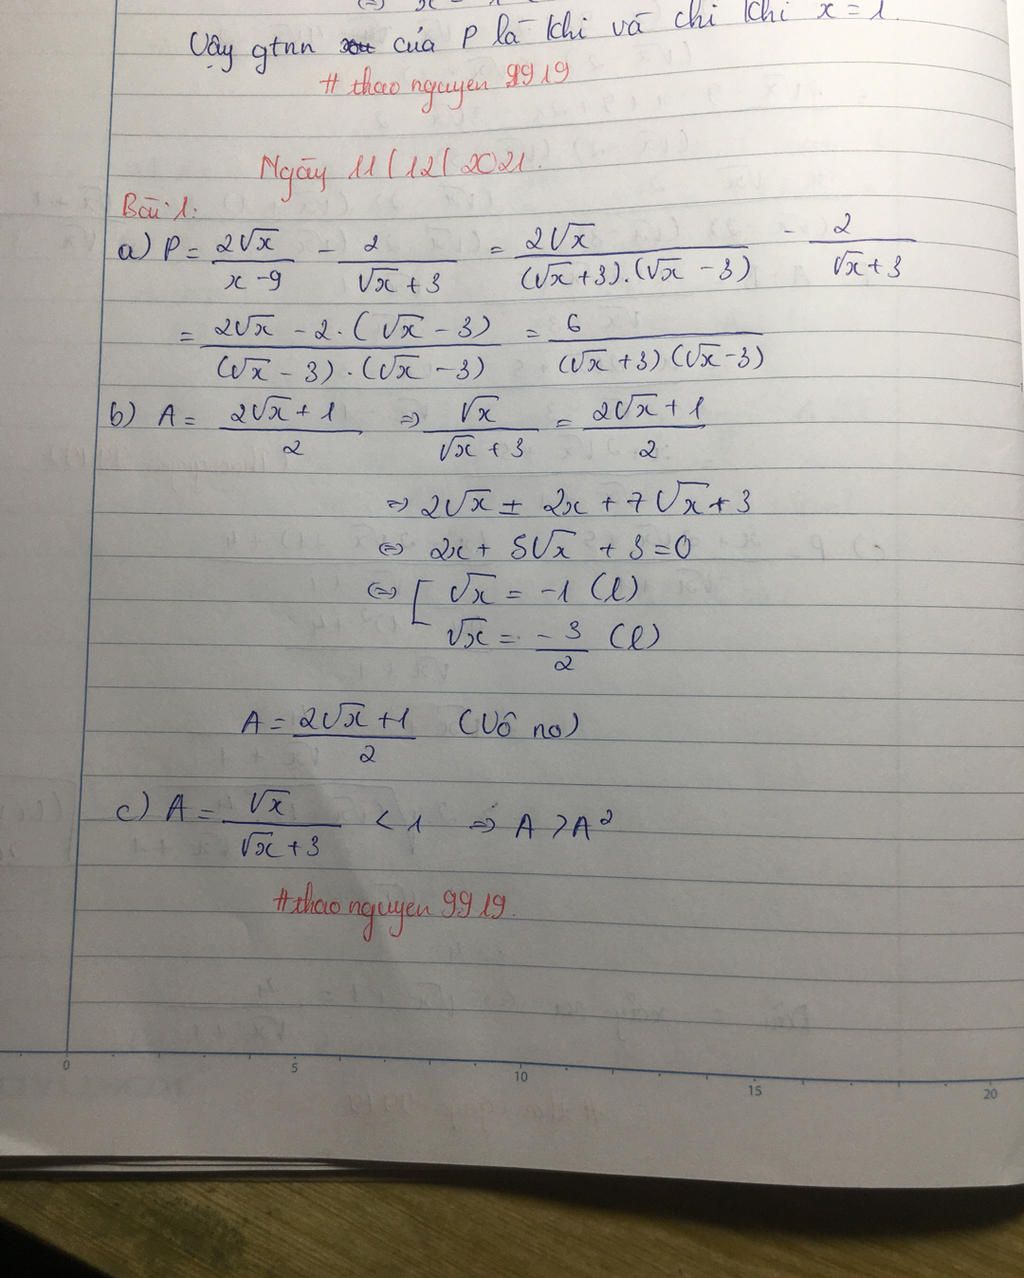 Vậy gtnn của P là khi và chỉ khi x = 1.
# thao nguyen 9919
Ngày 11/12/2021.
Bài 1:
a) P = 2√x/(x - 9) - 2/(√x + 3) = 2√x/((√x + 3).(√x - 3)) - 2/(√x + 3)
= (2√x - 2.(√x - 3))/((√x - 3).(√x - 3)) = 6/((√x + 3)(√x - 3))
b) A = (2√x + 1)/2 => √x/(√x + 3) = (2√x + 1)/2
=> 2√x = 2x + 7√x + 3
<=> 2x + 5√x + 3 = 0
<=> [ √x = -1 (l)
√x = -3/2 (l)
A = (2√x + 1)/2 (Vô no)
c) A = √x/(√x + 3) < 1 => A > A²
# thao nguyen 9919.
0 5 10 15 20